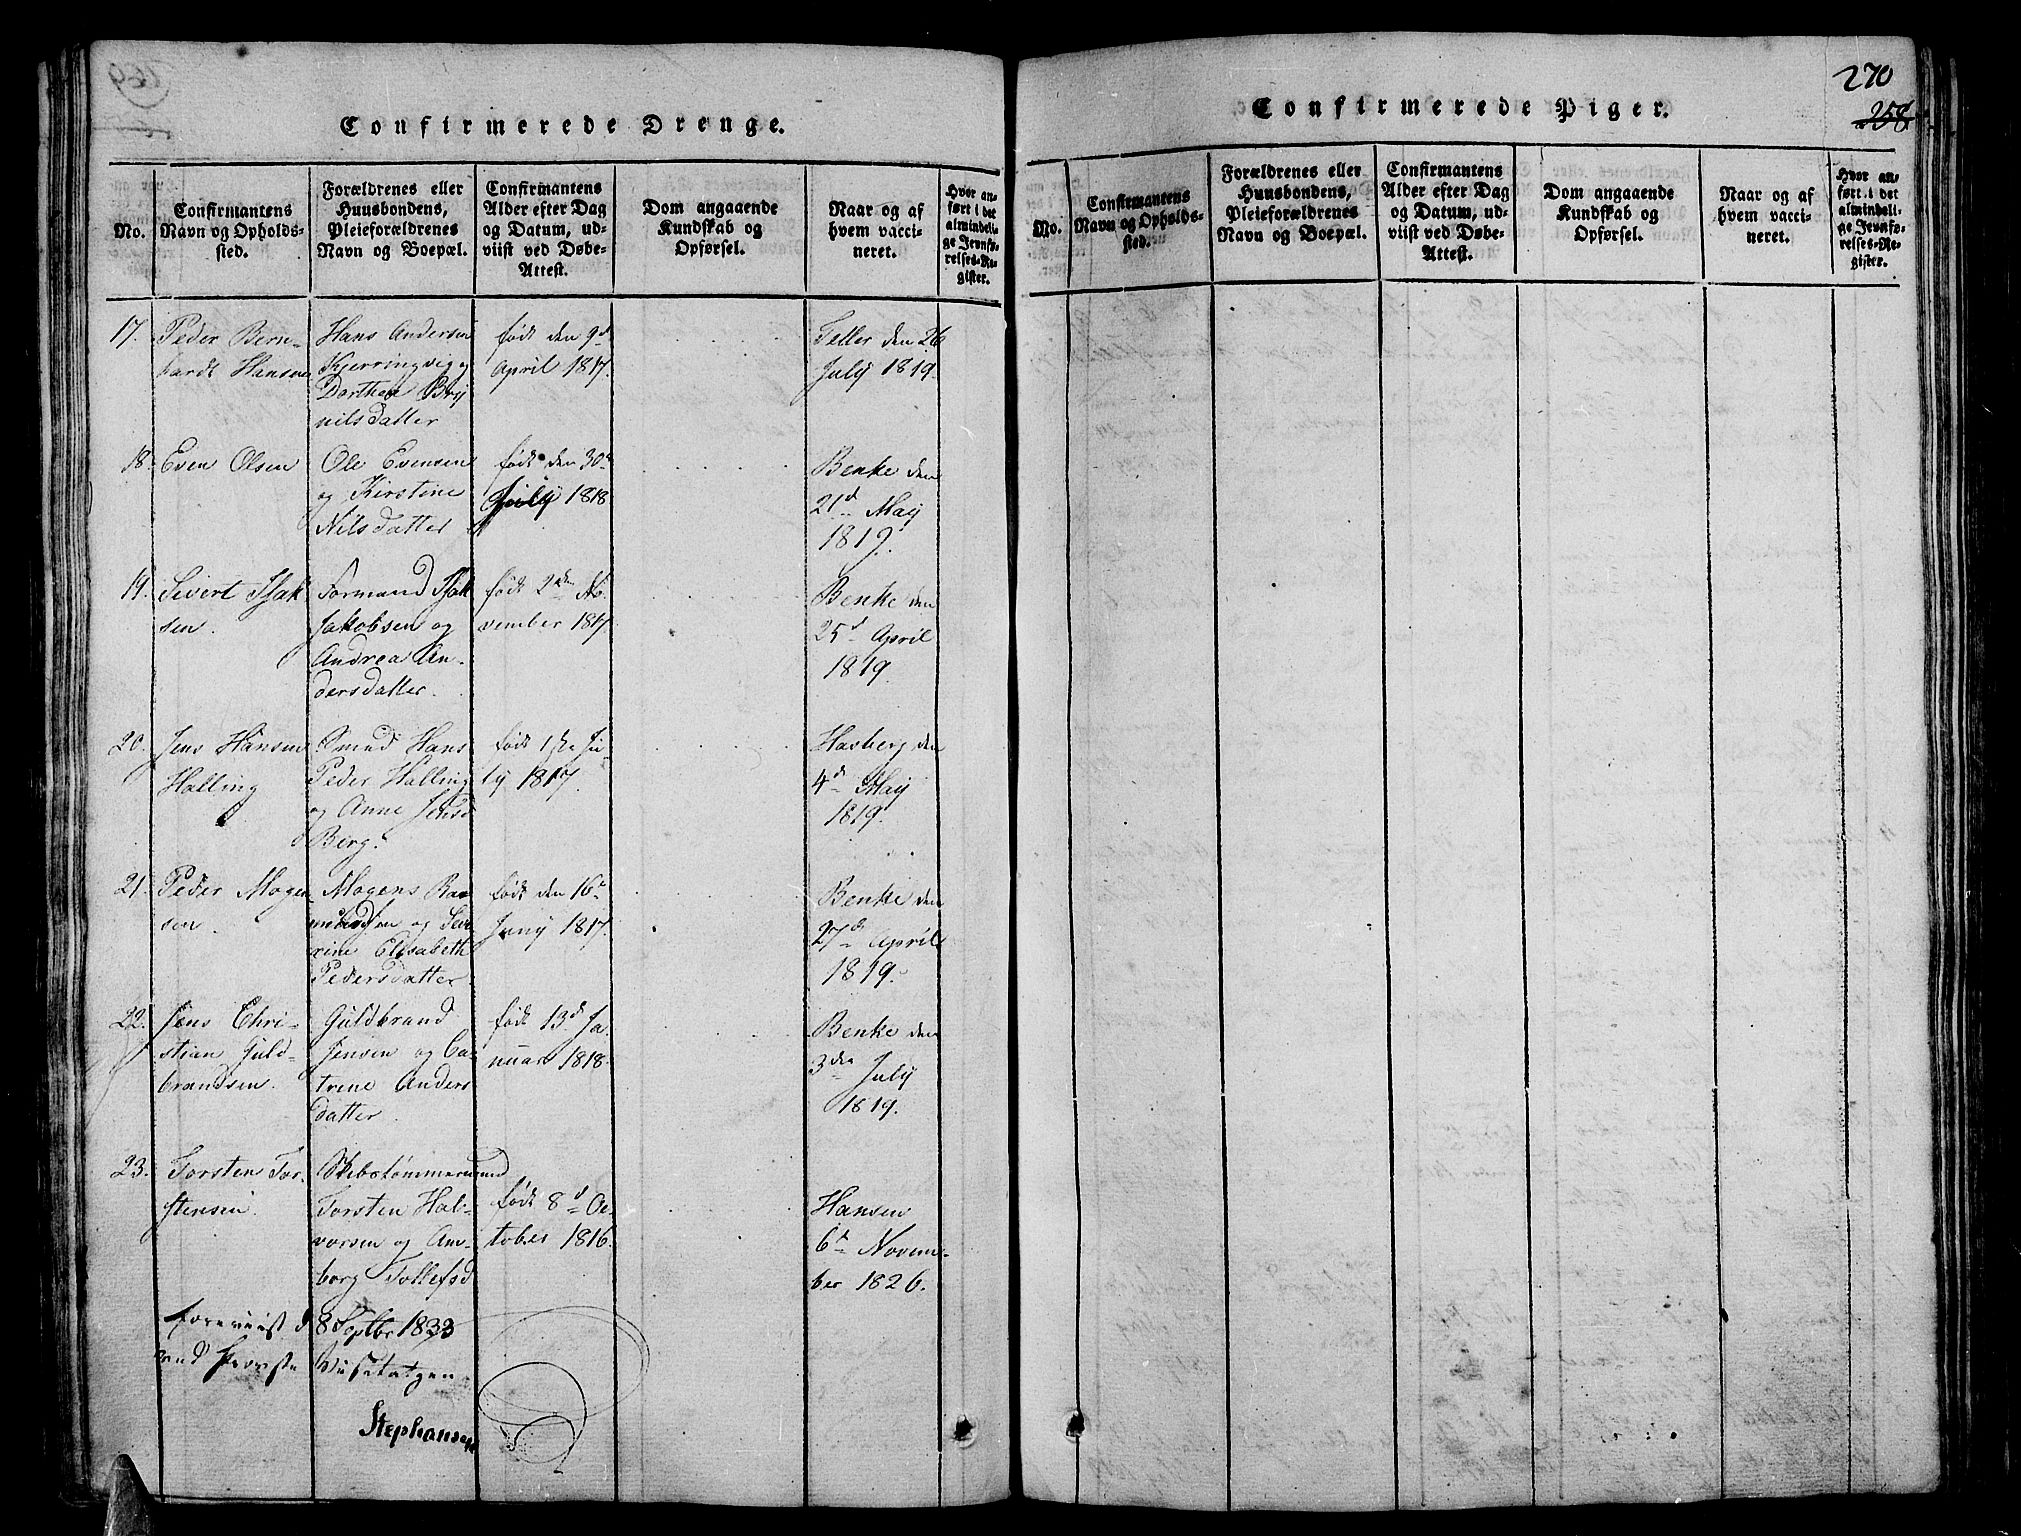 Confirmerede Drenge.
No.
Confirmantens
Navn og Opholds-
sted.
Forældrenes eller
Huusbondens,
Pleieforældrenes
Navn og Boepæl.
Confirmantens
Alder efter Dag
og Datum, ud-
viist ved Døbe-
Attest.
Dom angaaende
Kundskab og
Opførsel.
Naar og af
hvem vacci-
neret.
Hvor an-
ført i det
almindeli-
ge Jevnfø-
relses-Re-
gister.
17.
Peder Bern-
hardt Hansen
Hans Andersen
Kjerringvig og
Dorthea Brÿ
nilsdatter
født den 9d
April 1817.
Teller den 26
July 1819.
18.
Even Olsen
Ole Evensen
og Kirstine
Nilsdatter
født den 30
July 1818
Benke den
21d May
1819.
19.
Sivert Isak
sen.
Formand Isak
Jakobsen og
Andrea An-
dersdatter.
født 2den No
vember 1817
Benke den
25d April
1819.
20.
Jens Hansen
Halling
Smed Hans
Peder Halling
og Anne Jensd
Berg.
født 1ste Ju
ly 1817.
Hasberg den
4d May
1819.
21.
Peder Mogen
sen.
Mogens Ras
mussen og Sev
rine Elisabeth
Pedersdatter
født den 16d
Juny 1817.
Benke den
27d April
1819.
22.
Jens Chri-
stian Guld-
brandsen.
Guldbrand
Jensen og Ca-
trine Anders
datter.
født 13d Ja
nuar 1818.
Benke den
3die July
1819.
23.
Torsten Tor-
stensen.
Skibstømmermand
Torsten Hal-
vorsen og Am-
borg Tollefsd
født 8d Oc-
tober 1816.
Hansen
6d Novem-
ber 1826.
foreviist d 8 Septbr 1833
ved Provste Visitatzen
Stephansen
270
258
Confirmerede Piger.
No.
Confirmantens
Navn og Opholds-
sted.
Forældrenes eller
Huusbondens,
Pleieforældrenes
Navn og Boepæl.
Confirmantens
Alder efter Dag
og Datum, ud-
viist ved Døbe-
Attest.
Dom angaaende
Kundskab og
Opførsel.
Naar og af
hvem vacci-
neret.
Hvor an-
ført i det
almindeli-
ge Jevnfø-
relses-Re-
gister.